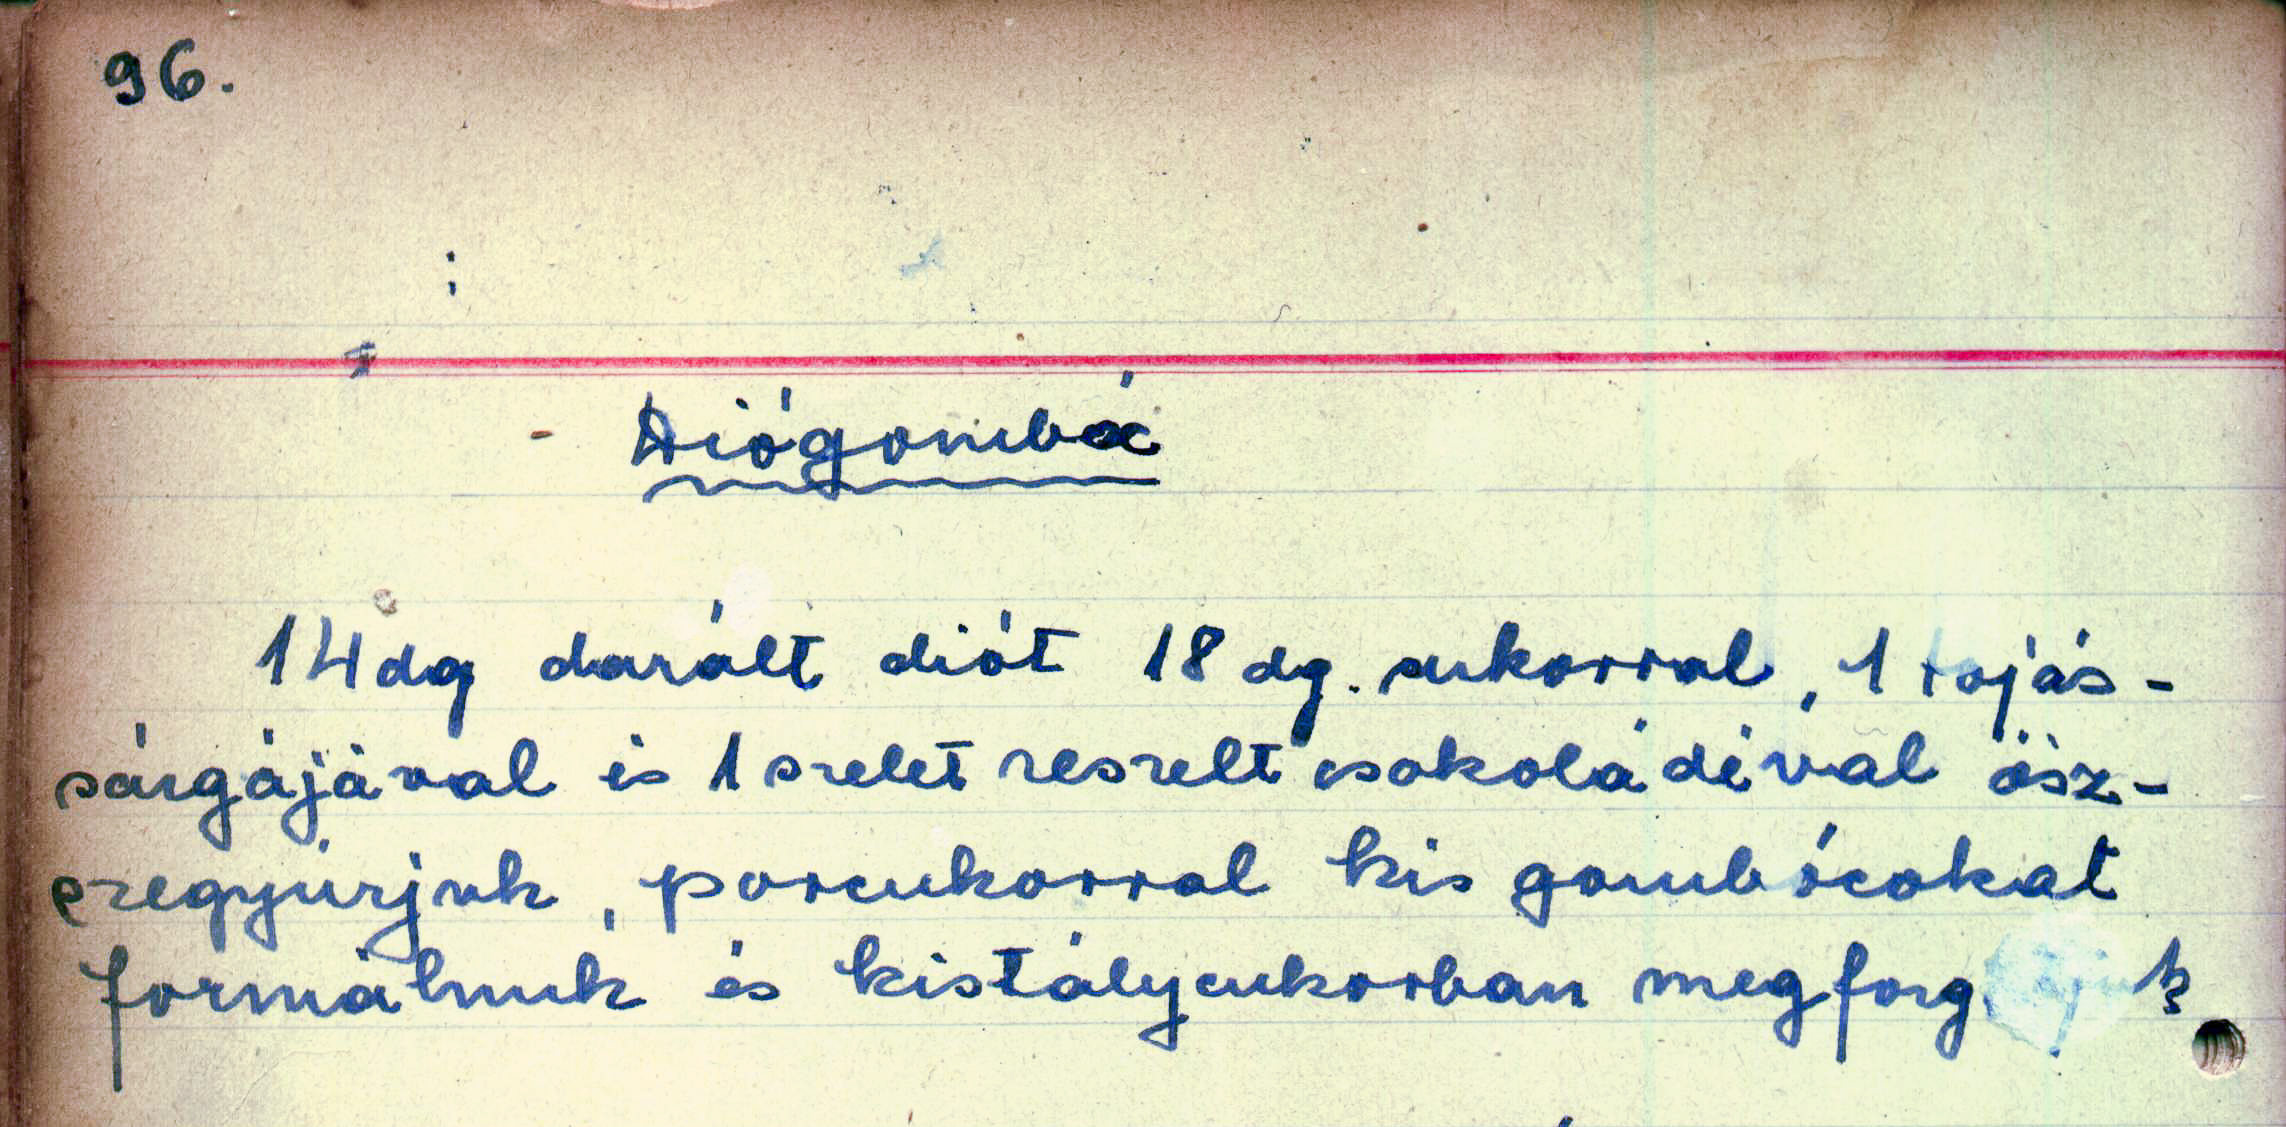 96.
Diógombóc
14 dg darált diót 18 dg. cukorral, 1 tojás-
sárgájával és 1 szelet reszelt csokoládéval ösz-
szegyúrjuk, porcukorral kis gombócokat
formálunk és kistálycukorban megforgatjuk